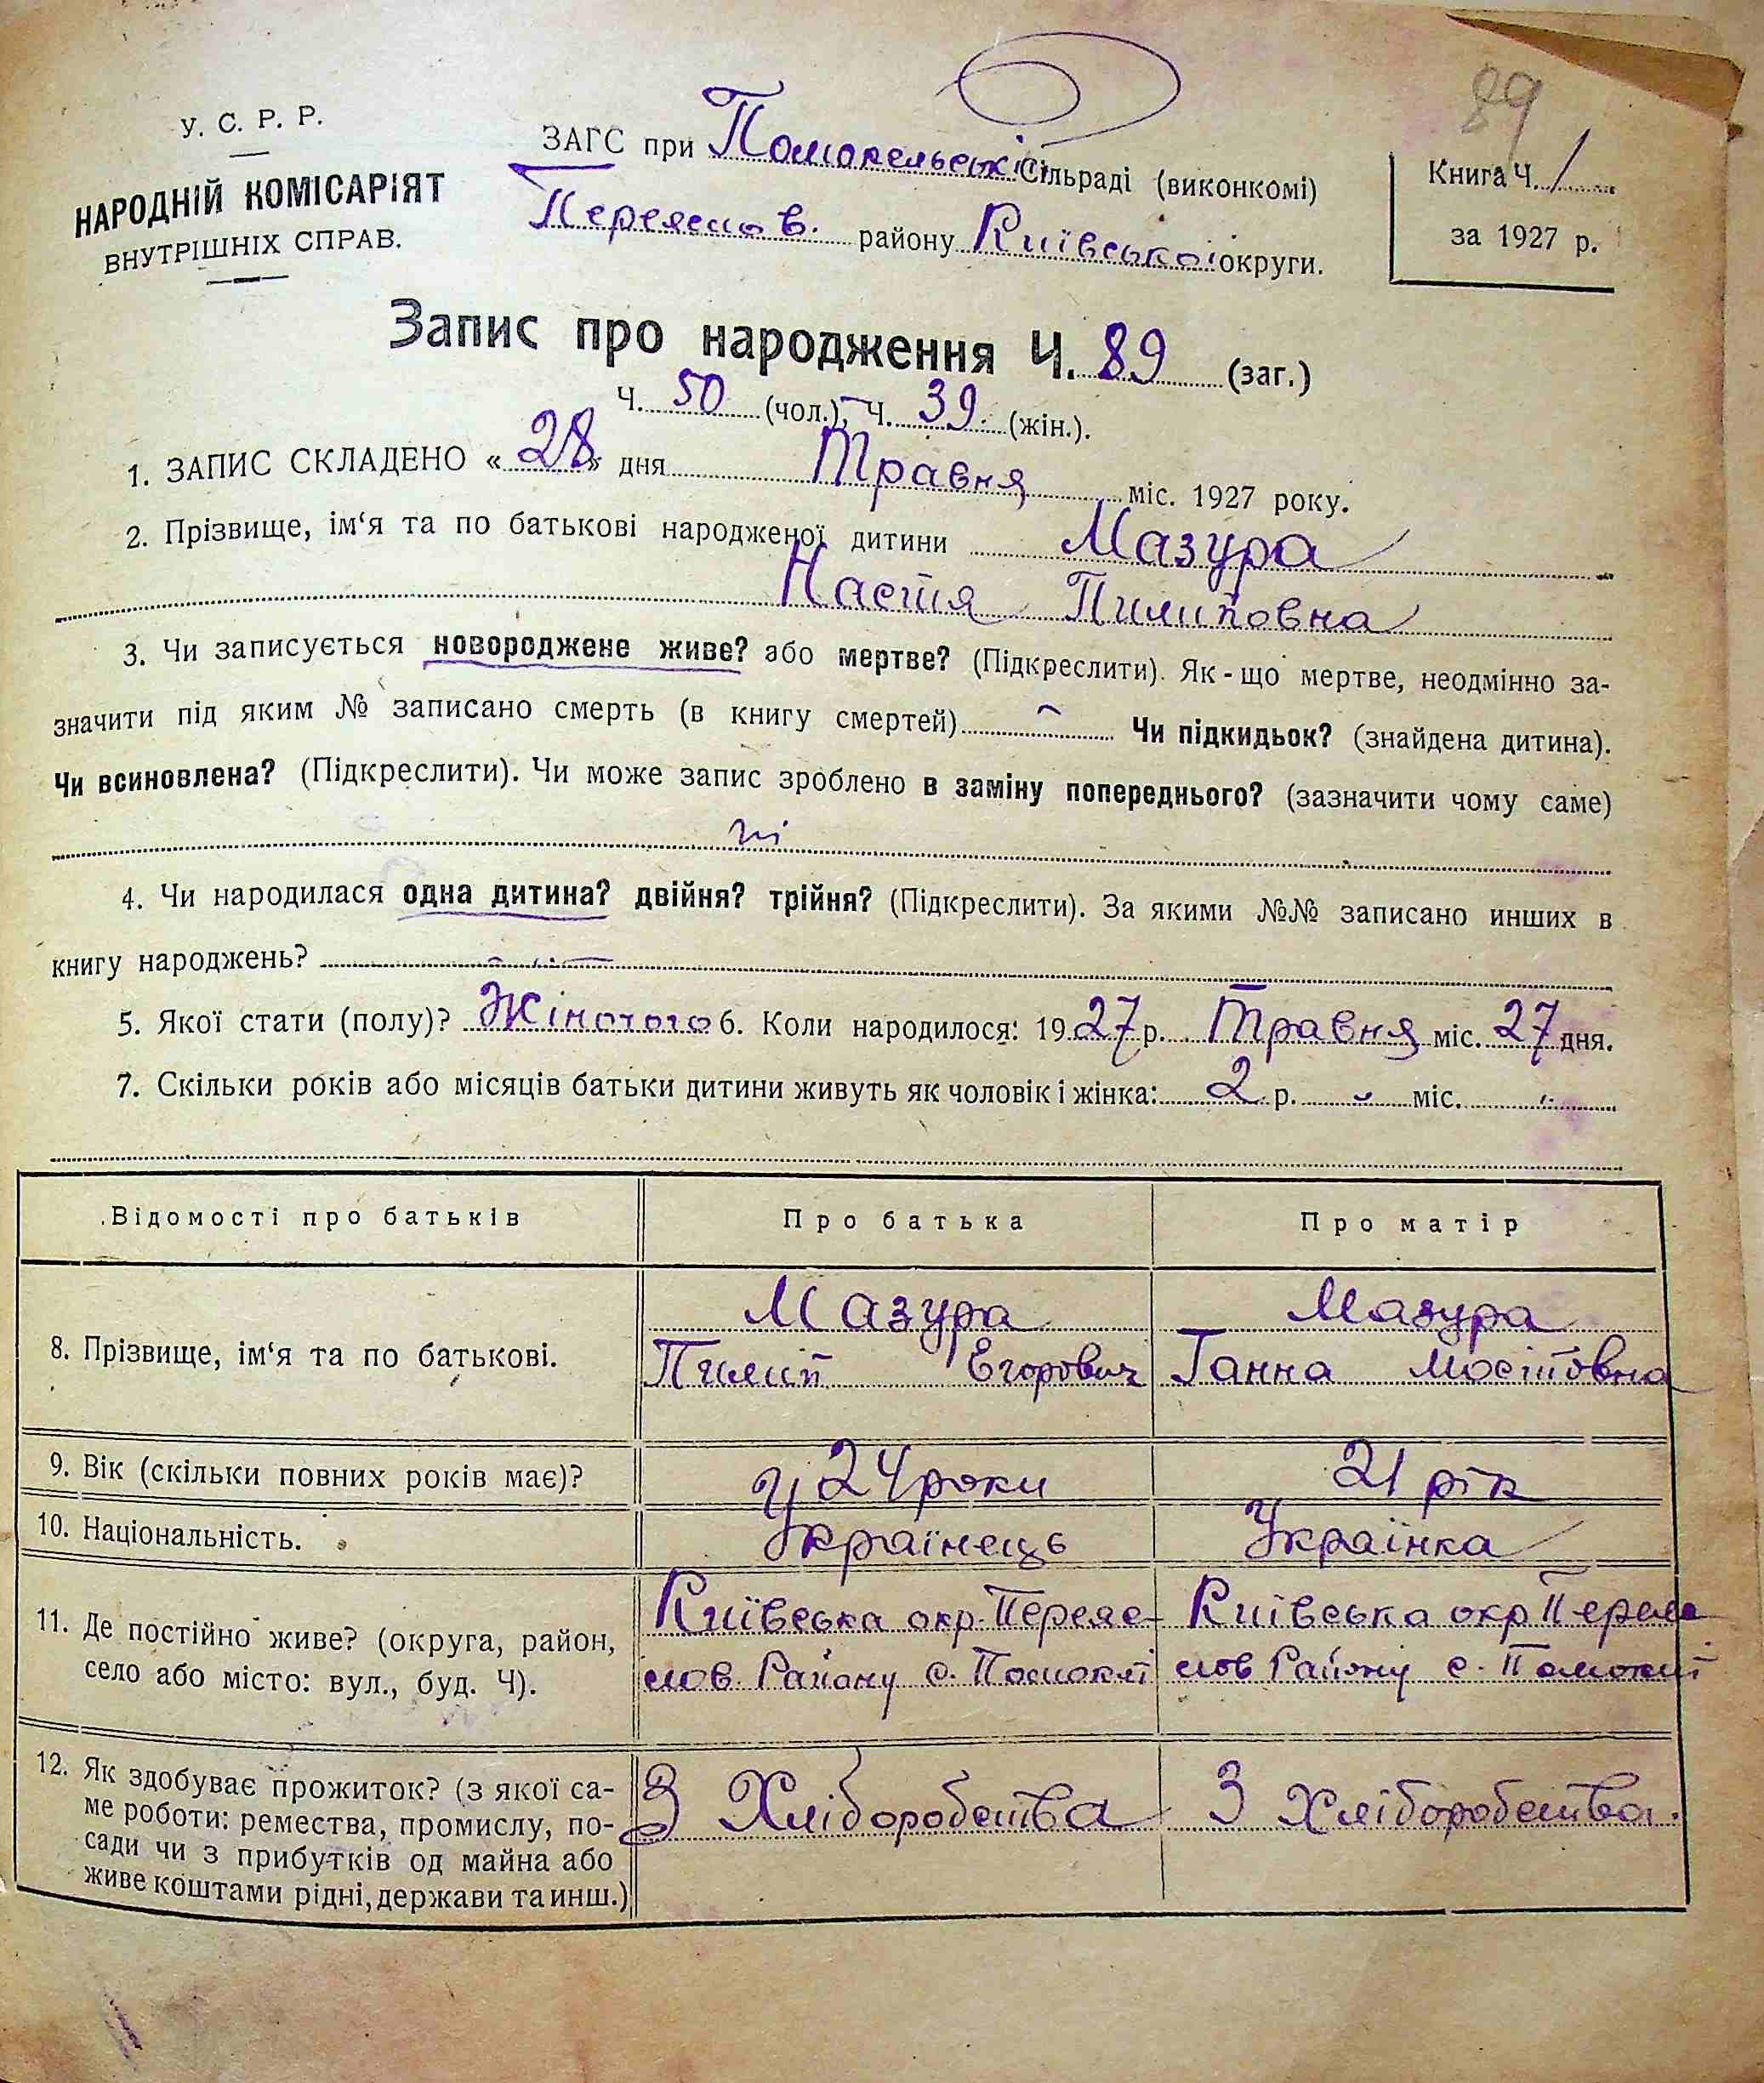 89
У. С. Р. Р.
НАРОДНІЙ КОМІСАРІЯТ
ВНУТРІШНІХ СПРАВ.
ЗАГС при Помокельській Сільраді (виконкомі)
Переяслов. району Київської округи.
Книга Ч. 1
за 1927 р.
Запис про народження Ч. 89 (заг.)
Ч. 50 (чол.), Ч. 39. (жін.).
1. ЗАПИС СКЛАДЕНО «28» дня Травня міс. 1927 року.
2. Прізвище, ім‘я та по батькові народженої дитини Мазура
Настя Пилиповна
3. Чи записується новороджене живе? або мертве? (Підкреслити). Як-що мертве, неодмінно за-
значити під яким № записано смерть (в книгу смертей) Чи підкидьок? (знайдена дитина).
Чи всиновлена? (Підкреслити). Чи може запис зроблено в заміну попереднього? (зазначити чому саме)
ні
4. Чи народилася одна дитина? двійня? трійня? (Підкреслити). За якими №№ записано инших в
книгу народжень?
5. Якої стати (полу)? Жіночого 6. Коли народилося: 1927 р. Травня міс. 27 дня.
7. Скільки років або місяців батьки дитини живуть як чоловік і жінка: 2 р. міс.
Відомості про батьків Про батька Про матір
8. Прізвище, ім‘я та по батькові.
Мазура
Пилип Егорович
Мазура
Ганна Мосіповна
9. Вік (скільки повних років має)? 24 роки 21 рік
10. Національність. Українець Українка
11. Де постійно живе? (округа, район,
село або місто: вул., буд. Ч).
Київська окр. Переяс-
лов. Району с. Помоклі
Київська окр Переяс
лов Району с. Помоклі
12. Як здобуває прожиток? (з якої са-
ме роботи: ремества, промислу, по-
сади чи з прибутків од майна або
живе коштами рідні, держави та инш.)
З Хліборобства
З Хліборобства.